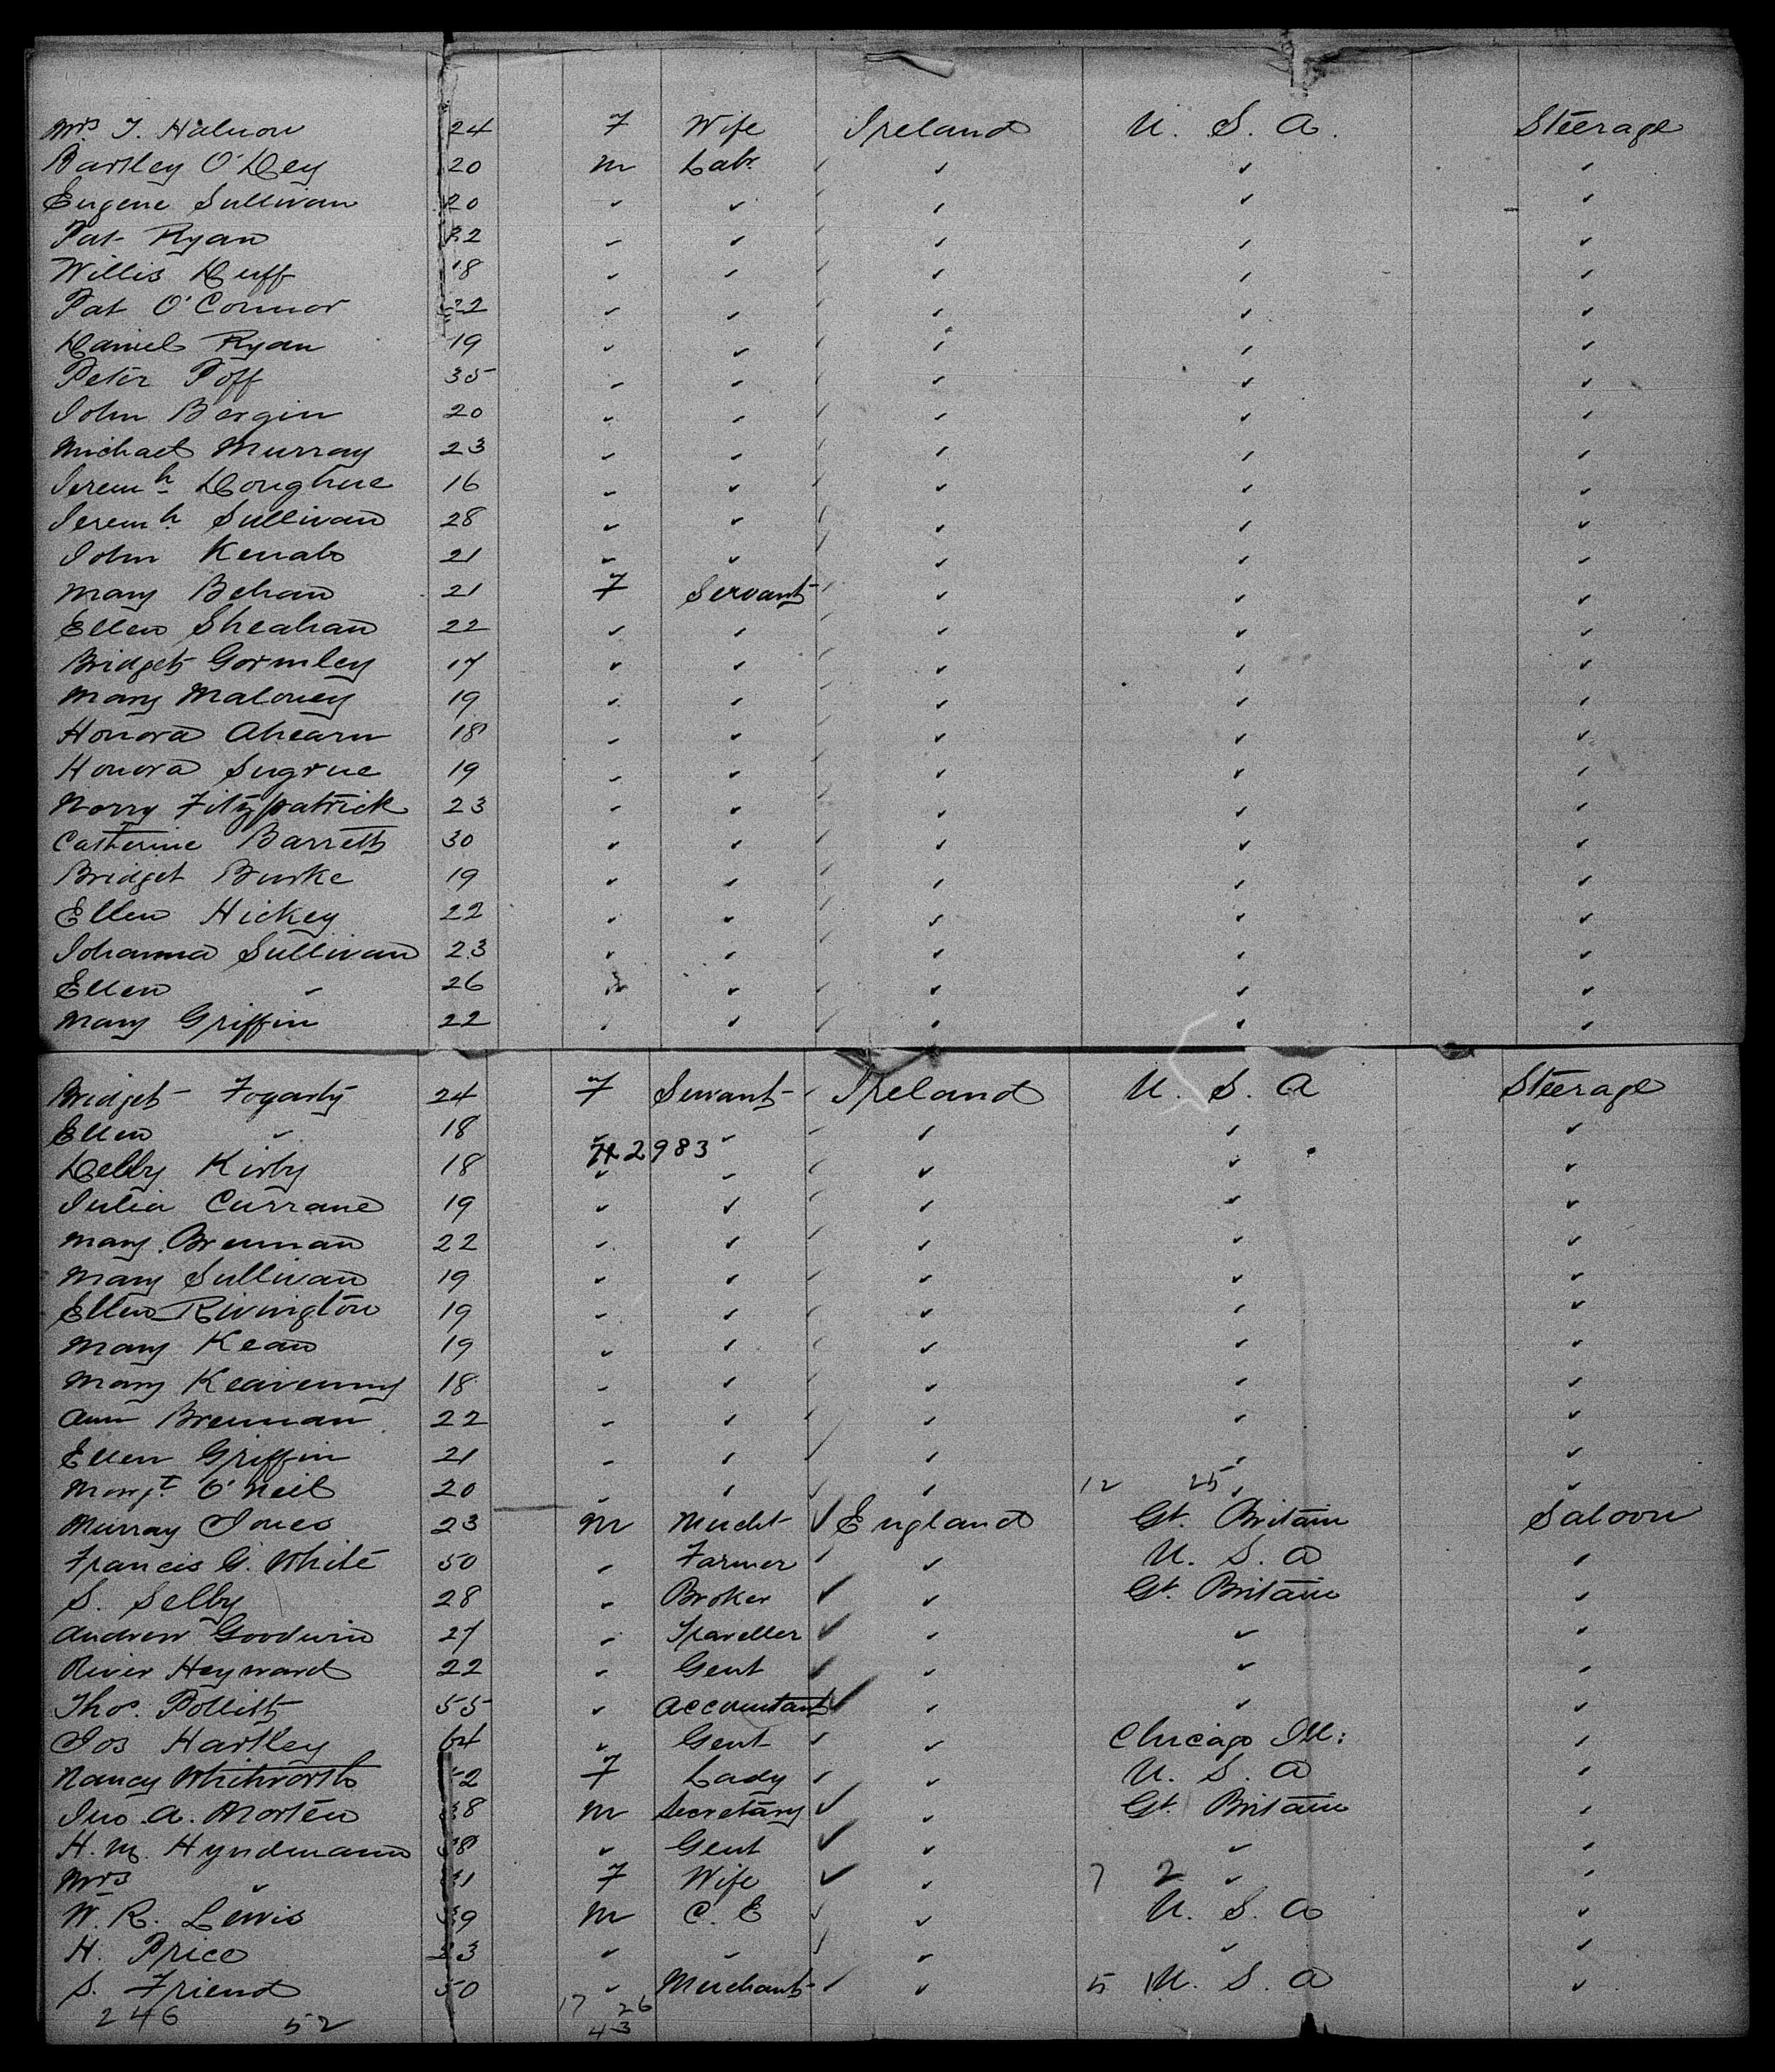 Mrs T. Halnon 24 F Wife Ireland U. S. A. Steerage
Bartley O'Dey 20 M Labr ✓ ✓ ✓ ✓
Eugene Sullivan 20 ✓ ✓ ✓ ✓ ✓ ✓
Pat Ryan 22 ✓ ✓ ✓ ✓ ✓ ✓
Willis Duff 18 ✓ ✓ ✓ ✓ ✓ ✓
Pat O'Connor 22 ✓ ✓ ✓ ✓ ✓ ✓
Daniel Ryan 19 ✓ ✓ ✓ ✓ ✓ ✓
Peter Poff 35 ✓ ✓ ✓ ✓ ✓ ✓
John Bergin 20 ✓ ✓ ✓ ✓ ✓ ✓
Michael Murray 23 ✓ ✓ ✓ ✓ ✓ ✓
Jeremh Donghue 16 ✓ ✓ ✓ ✓ ✓ ✓
Jeremh Sullivan 28 ✓ ✓ ✓ ✓ ✓ ✓
John 21 ✓ ✓ ✓ ✓ ✓ ✓
Mary Behan 21 F Servant ✓ ✓ ✓ ✓
Ellen Sheahan 22 ✓ ✓ ✓ ✓ ✓ ✓
Bridget Gormley 17 ✓ ✓ ✓ ✓ ✓ ✓
Mary Maloney 19 ✓ ✓ ✓ ✓ ✓ ✓
Honora Ahearn 18 ✓ ✓ ✓ ✓ ✓ ✓
Honora Sugrue 19 ✓ ✓ ✓ ✓ ✓ ✓
Norry Fitzpatrick 23 ✓ ✓ ✓ ✓ ✓ ✓
Catherine Barrett 30 ✓ ✓ ✓ ✓ ✓ ✓
Bridget Burke 19 ✓ ✓ ✓ ✓ ✓ ✓
Ellen Hickey 22 ✓ ✓ ✓ ✓ ✓ ✓
Johanna Sullivan 23 ✓ ✓ ✓ ✓ ✓ ✓
Ellen ✓ 26 ✓ ✓ ✓ ✓ ✓ ✓
Mary Griffin 22 ✓ ✓ ✓ ✓ ✓ ✓
Bridget Fogarty 24 F Servant ✓ Ireland U. S. A Steerage
Ellen ✓ 18 ✓ ✓ ✓ ✓ ✓ ✓
2983
Debby Kirby 18 ✓ ✓ ✓ ✓ ✓ ✓
Julia Currane 19 ✓ ✓ ✓ ✓ ✓ ✓
Mary Brennan 22 ✓ ✓ ✓ ✓ ✓ ✓
Mary Sullivan 19 ✓ ✓ ✓ ✓ ✓ ✓
Ellen Rivington 19 ✓ ✓ ✓ ✓ ✓ ✓
Mary Kean 19 ✓ ✓ ✓ ✓ ✓ ✓
Mary Keavenny 18 ✓ ✓ ✓ ✓ ✓ ✓
Ann Brennan 22 ✓ ✓ ✓ ✓ ✓ ✓
Ellen Griffin 21 ✓ ✓ ✓ ✓ ✓ ✓
Margt. O'Neil 20 ✓ ✓ ✓ ✓ 12 25 ✓ ✓
Murray Jones 23 M Mercht ✓ England Gt. Britain Saloon
Francis G. White 50 ✓ Farmer ✓ ✓ U. S. A ✓
S. Selby 28 ✓ Broker ✓ ✓ Gt. Britain ✓
Andrew Goodwin 27 ✓ Traveller ✓ ✓ ✓ ✓
River Heyward 22 ✓ Gent ✓ ✓ ✓ ✓
Thos. Pollitt 55 ✓ Accountant ✓ ✓ ✓ ✓
Jos Hartley 64 ✓ Gent ✓ ✓ Chicago Ill: ✓
Nancy Whitworth 52 F Lady ✓ ✓ U. S. A ✓
Jno. A. Morten 38 M Secretary ✓ ✓ Gt. Britain ✓
H. M. Hyndmann 38 ✓ Gent ✓ ✓ ✓ ✓
Mrs ✓ 31 F Wife ✓ ✓ 7 2 ✓ ✓
W. R. Lewis 39 M C. E ✓ ✓ U. S. A ✓
H. Price 23 ✓ ✓ ✓ ✓ ✓ ✓
S. Friend 50 ✓ Merchant ✓ ✓ 5 U. S. A ✓
246 52 17 26
43